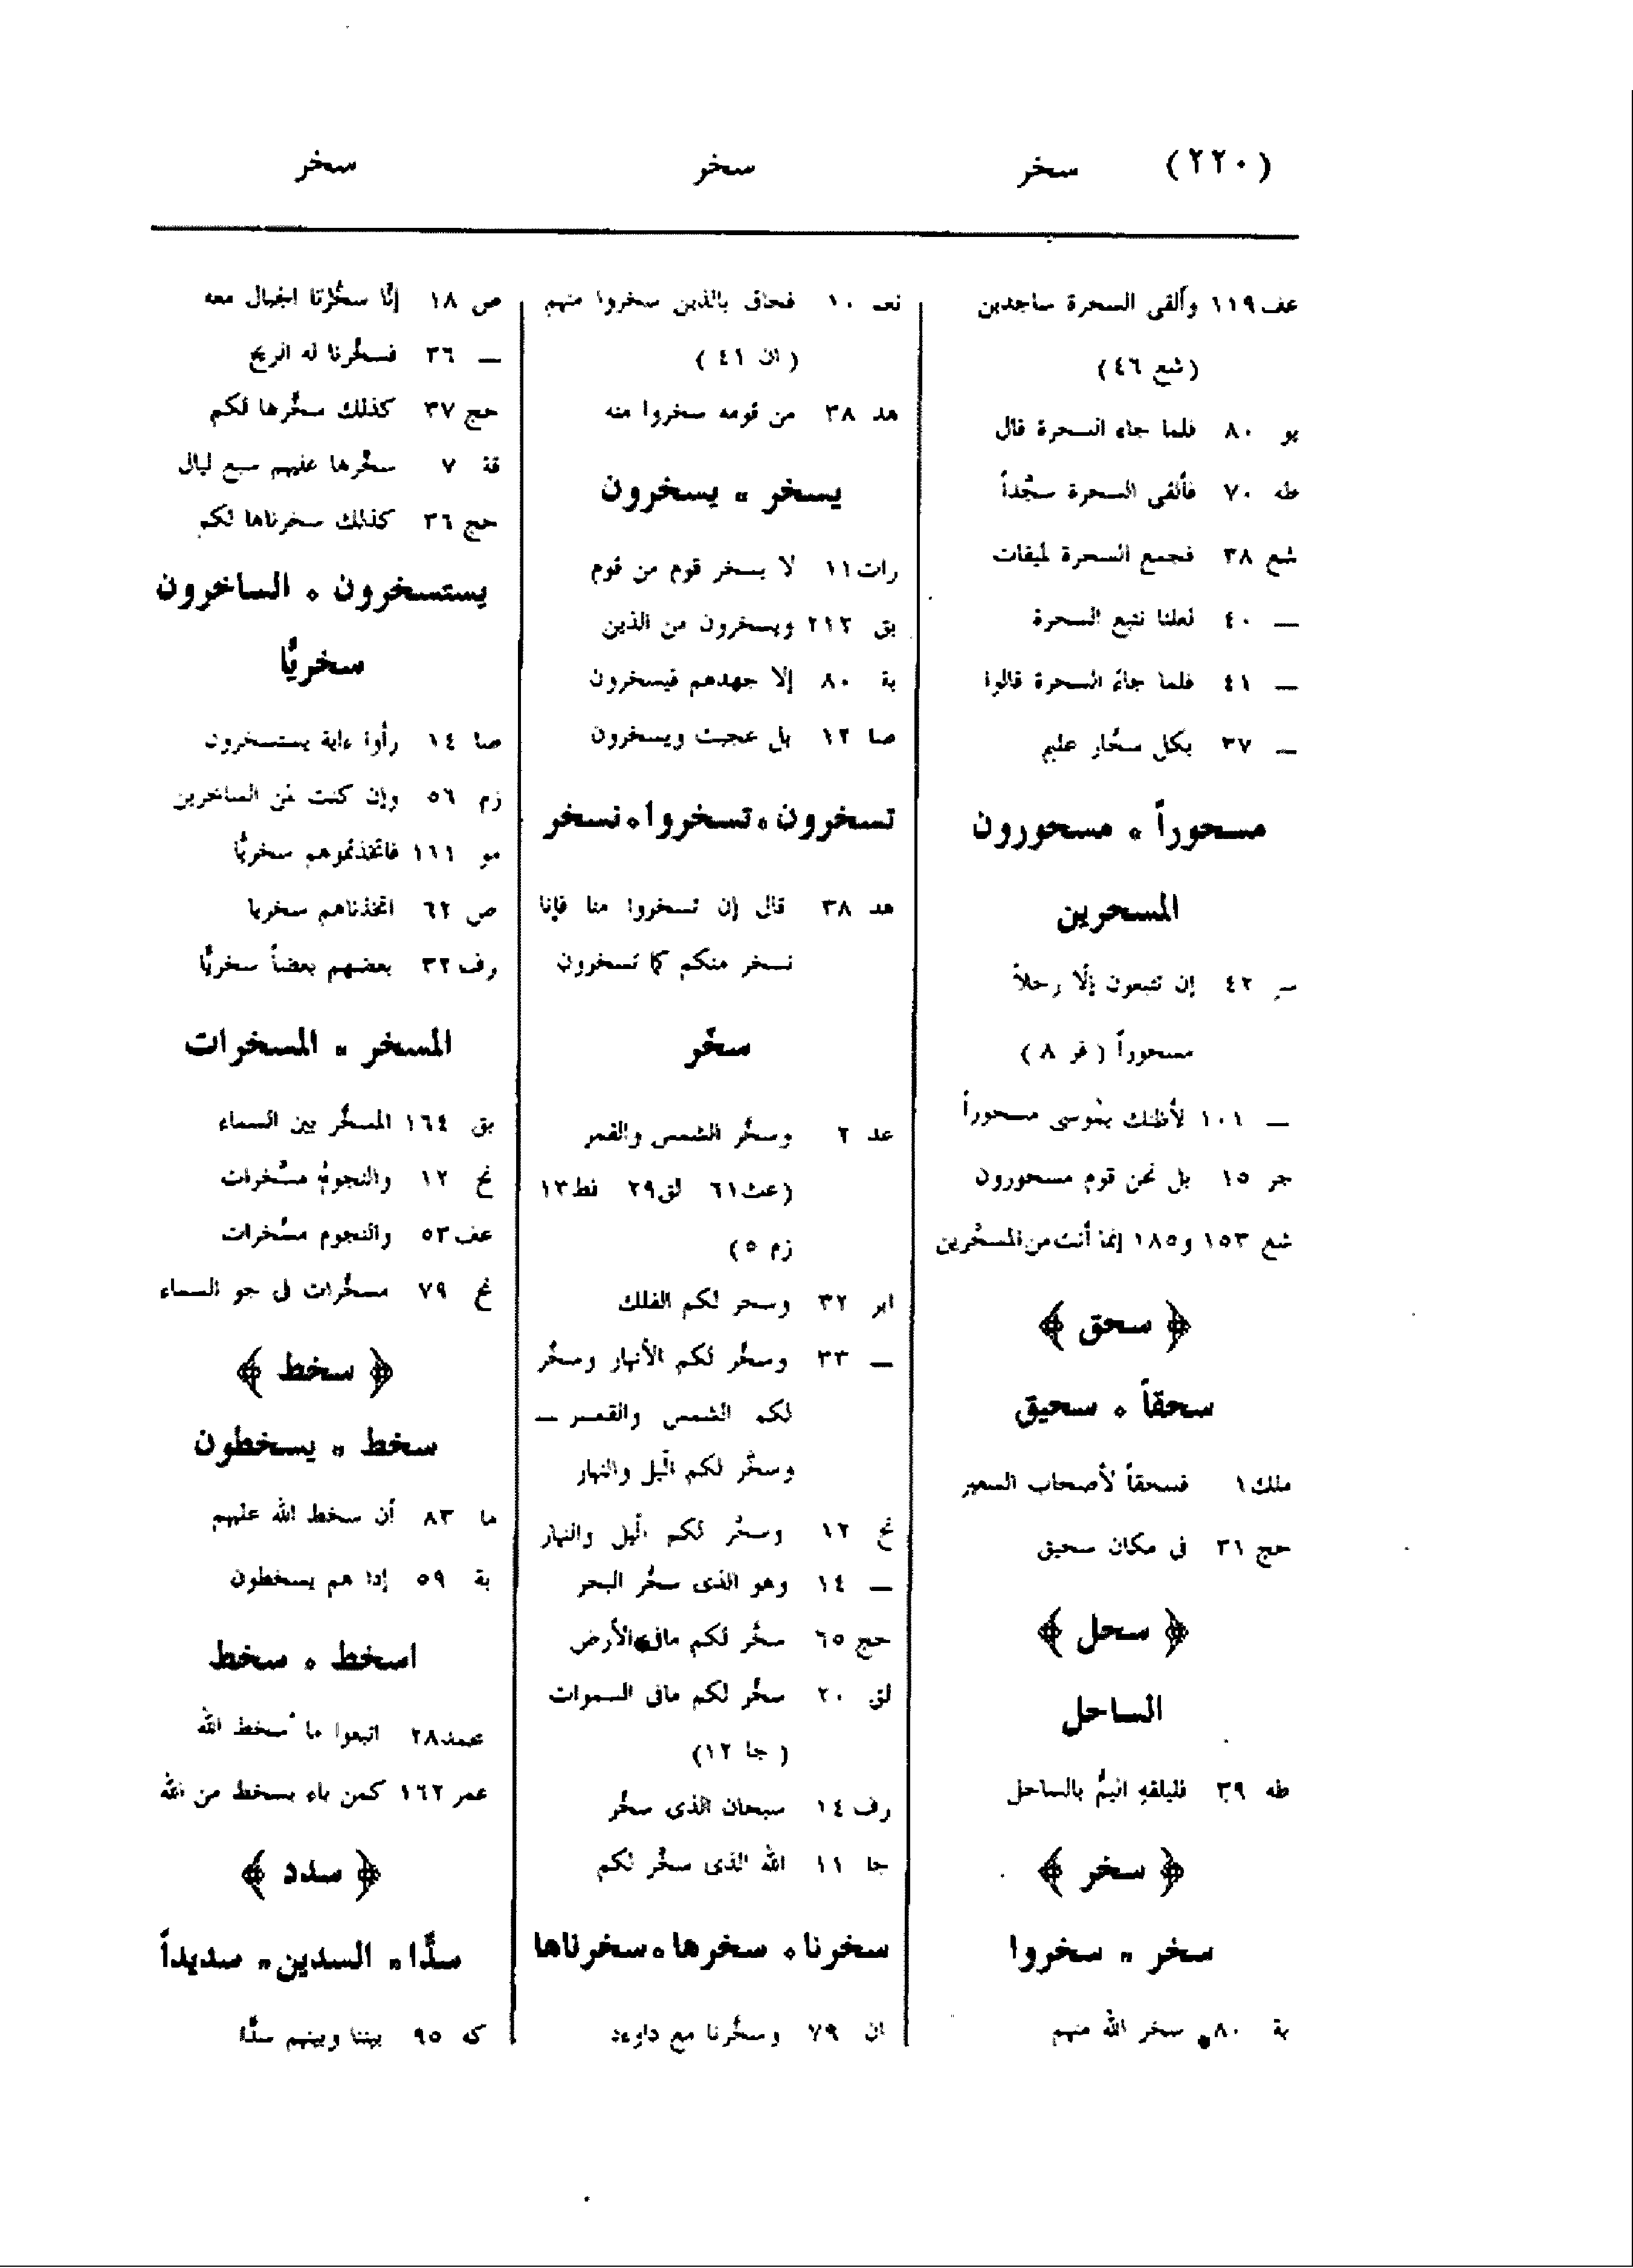 (٢٢٠) سخر سخر سخر
عف ١١٩ وألقى السحرة ساجدين
(شع ٤٦)
يو ٨٠ فلما جاء السحرة قال
طه ٧٠ فألقى السحرة سجّداً
شع ٣٨ فجمع السحرة لميقات
— ٤٠ لعلنا نتبع السحرة
— ٤١ فلما جاء السحرة قالوا
— ٣٧ بكل سحّار عليم
مسحوراً ، مسحورون
المسحرين
سر ٤٢ إن تتبعون إلّا رجلاً
مسحوراً (فر ٨)
— ١٠١ لأظنك يموسى مسحوراً
جر ١٥ بل نحن قوم مسحورون
شع ١٥٣ و١٨٥ إنما أنت من المسحّرين
﴿ سحق ﴾
سحقاً ، سحيق
ملك ١ فسحقاً لأصحاب السعير
حج ٣١ فى مكان سحيق
﴿ سحل ﴾
الساحل
طه ٣٩ فليلقه اليمّ بالساحل
﴿ سخر ﴾
سخر ، سخروا
بة ٨٠ سخر الله منهم
نعـ ١٠ فحاق بالذين سخروا منهم
(ان ٤١)
هد ٣٨ من قومه سخروا منه
يسخر ، يسخرون
رات ١١ لا يسخر قوم من قوم
بق ٢١٢ ويسخرون من الذين
بة ٨٠ إلا جهدهم فيسخرون
صا ١٢ بل عجبت ويسخرون
تسخرون ، تسخروا ، نسخر
هد ٣٨ قال إن تسخروا منا فإنا
نسخر منكم كما تسخرون
سخّر
عد ٢ وسخّر الشمس والقمر
(عث ٦١ لق ٢٩ فط ١٣
زم ٥)
ابر ٣٢ وسخر لكم الفلك
— ٣٣ وسخّر لكم الأنهار وسخّر
لكم الشمس والقمـر —
وسخّر لكم الّيل والنهار
نح ١٢ وسخّر لكم الّيل والنهار
— ١٤ وهو الذى سخّر البحر
حج ٦٥ سخّر لكم مافى الأرض
لق ٢٠ سخّر لكم مافى السموات
(جا ١٢)
رف ١٤ سبحان الذى سخّر
جا ١١ الله الذى سخّر لكم
سخرنا ، سخرها ، سخرناها
ان ٧٩ وسخّرنا مع داوءد
ص ١٨ إنّا سخّرنا الجبال معه
— ٣٦ فسخّرنا له الريح
حج ٣٧ كذلك سخّرها لكم
قة ٧ سخّرها عليهم سبع ليال
حج ٣٦ كذلك سخرناها لكم
يستسخرون ، الساخرون
سخريًّا
صا ١٤ رأوا ءاية يستسخرون
زم ٥٦ وإن كنت لمن الساخرين
مو ١١١ فاتخذتموهم سخريًّا
ص ٦٢ اتخذناهم سخريا
رف ٣٢ بعضهم بعضاً سخريًّا
المسخر ، المسخرات
بق ١٦٤ المسخّر بين السماء
نح ١٢ والنجومُ مسخّرات
عف ٥٣ والنجوم مسخّرات
نح ٧٩ مسخّرات فى جو السماء
﴿ سخط ﴾
سخط ، يسخطون
ما ٨٣ أن سخط الله عليهم
بة ٥٩ إذا هم يسخطون
اسخط ، سخط
محمد ٢٨ اتبعوا ما أسخط الله
عمر ١٦٢ كمن باء بسخط من الله
﴿ سدد ﴾
سدًّا ، السدين ، سديداً
كه ٩٥ بيننا وبينهم سدًّا